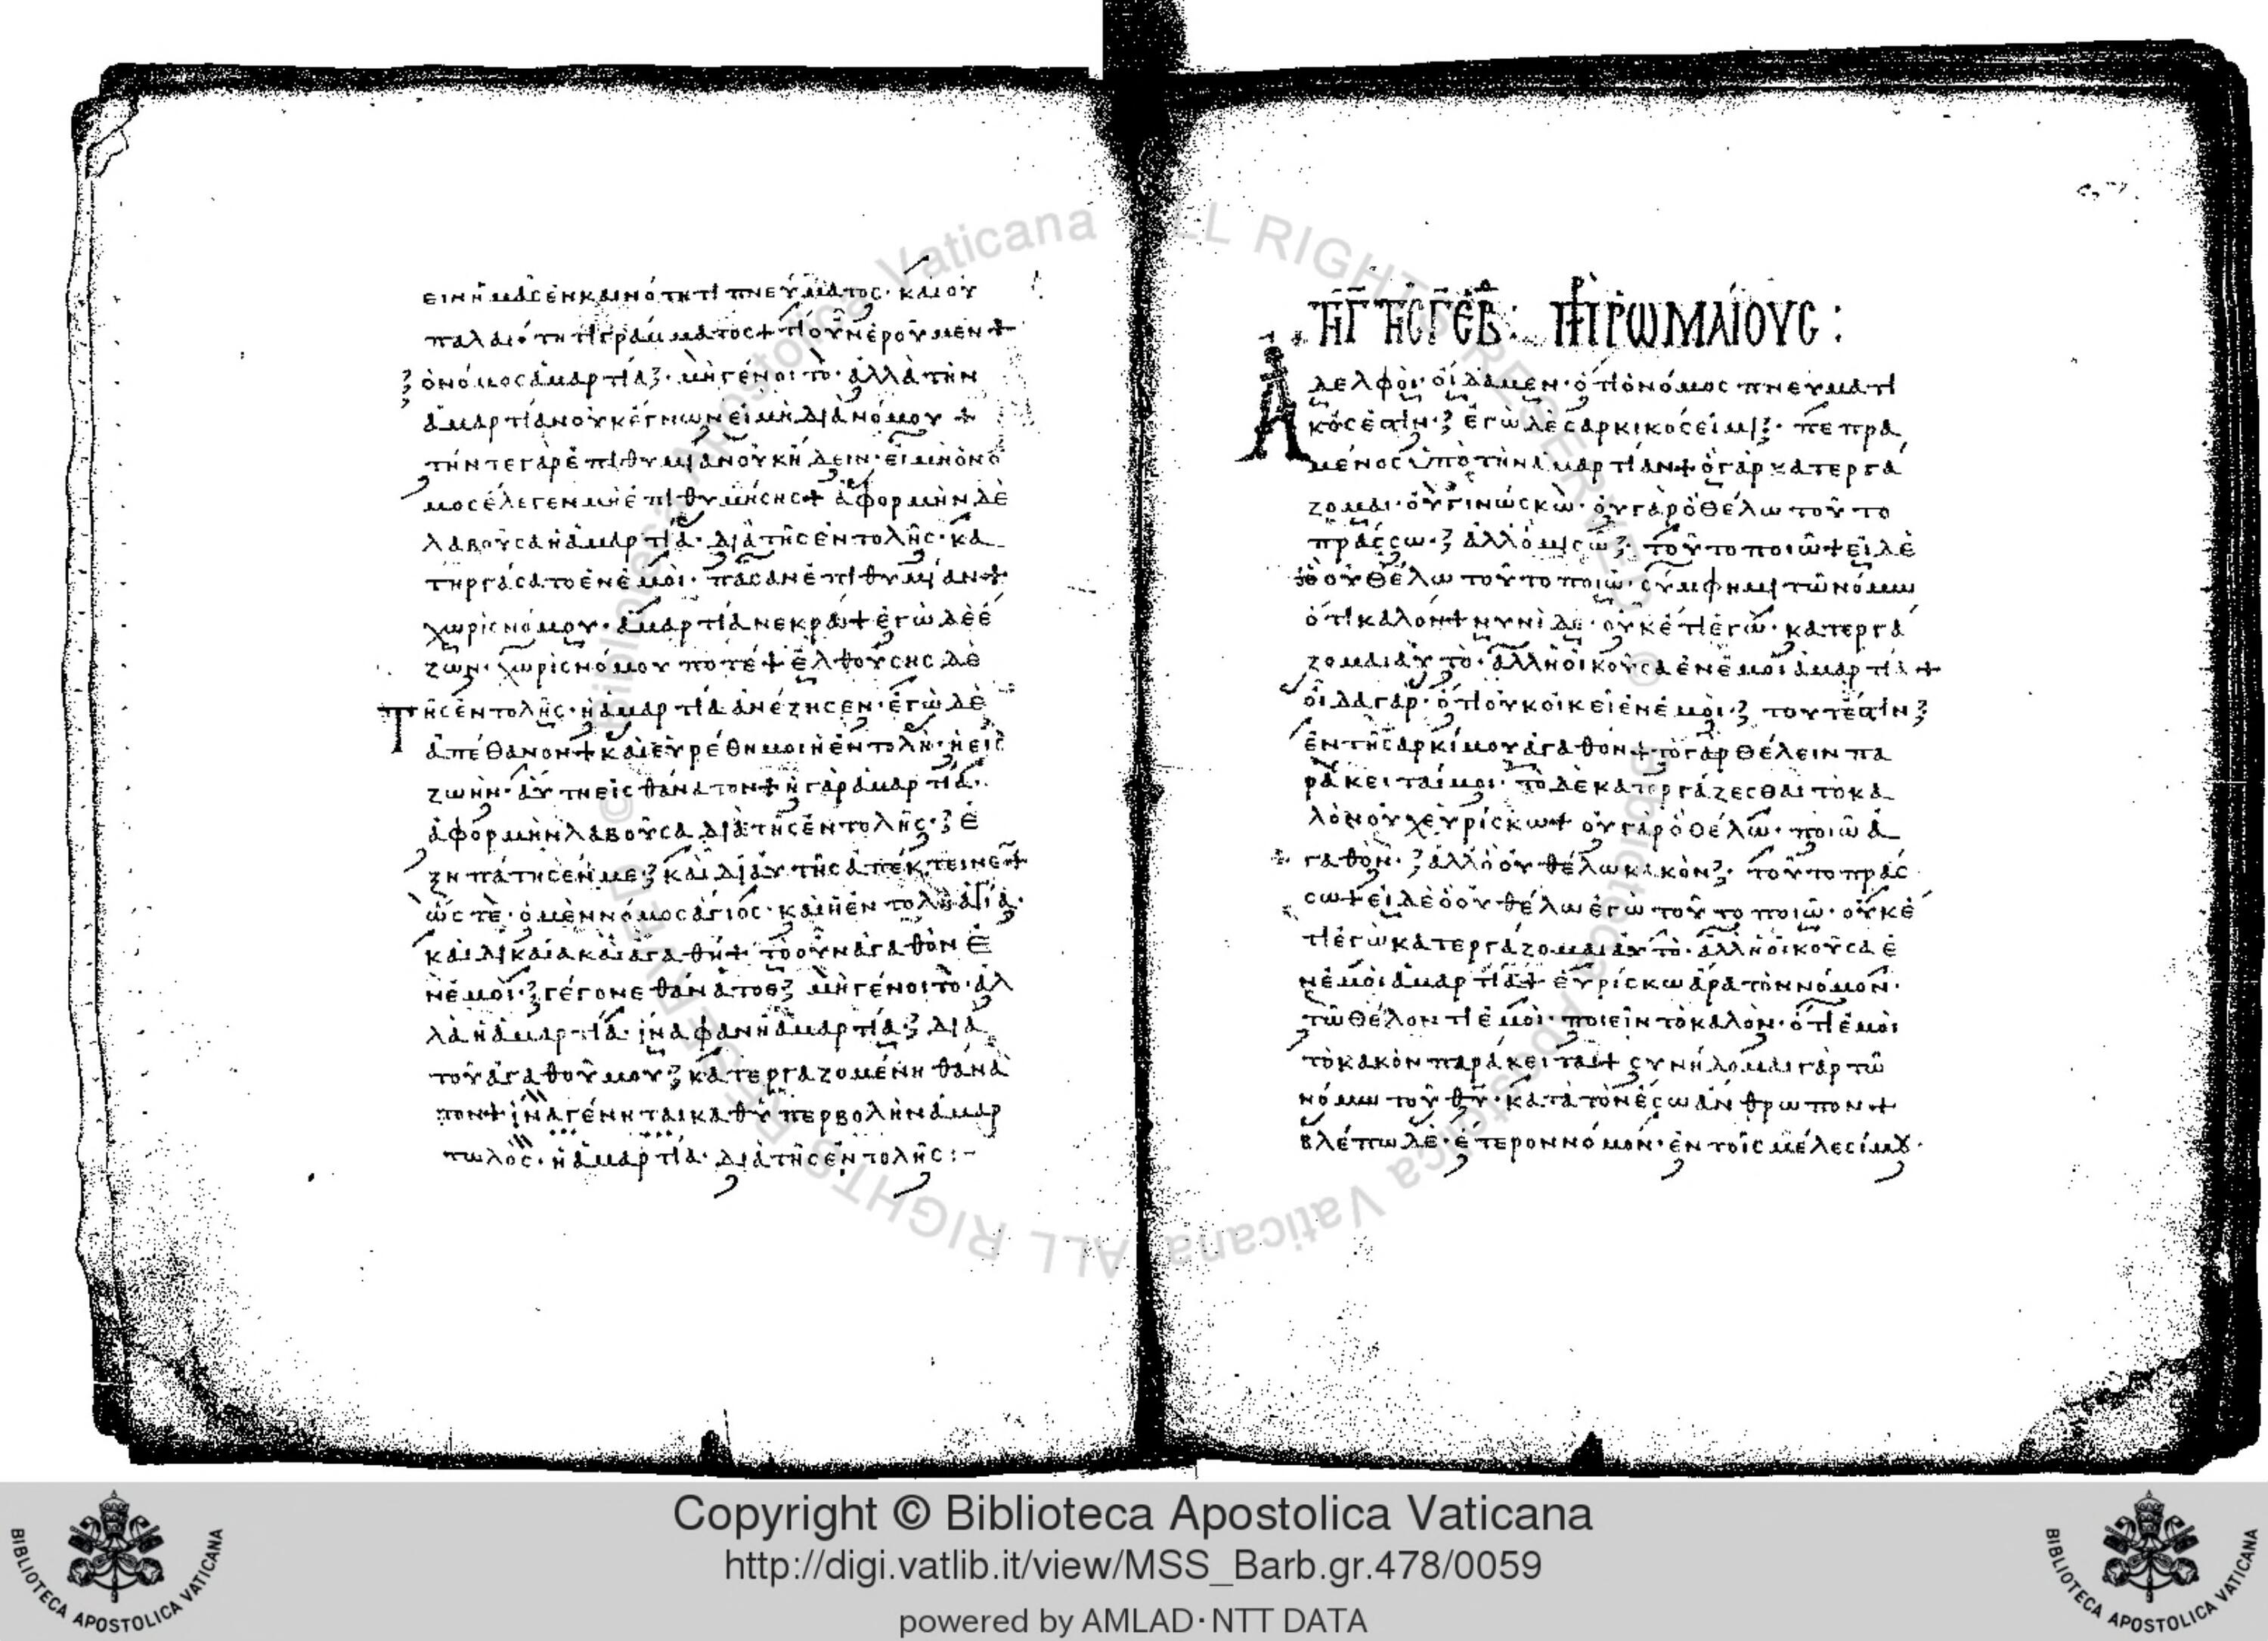 ειν ἡμᾶς ἐν καινότητι πνεύματος· καὶ οὐ
παλαιότητι γράμματος + τί οὖν ἐροῦμεν +
ὁ νόμος ἁμαρτία· μὴ γένοιτο· ἀλλὰ τὴν
ἁμαρτίαν οὐκ ἔγνων εἰ μὴ διὰ νόμου +
τήν τε γὰρ ἐπιθυμίαν οὐκ ᾔδειν· εἰ μὴ ὁ νό
μος ἔλεγεν μὴ ἐπιθυμήσης + ἀφορμὴν δὲ
λαβοῦσα ἡ ἁμαρτία· διὰ τῆς ἐντολῆς· κα
τηργάσατο ἐν ἐμοὶ· πᾶσαν ἐπιθυμίαν +
χωρὶς νόμου· ἁμαρτία νεκρά + ἐγὼ δὲ ἔ
ζων· χωρὶς νόμου ποτέ + ἐλθούσης δὲ
τῆς ἐντολῆς· ἡ ἁμαρτία ἀνέζησεν· ἐγὼ δὲ
ἀπέθανον + καὶ εὑρέθη μοι ἡ ἐντολὴ· ἡ εἰς
ζωὴν· αὕτη εἰς θάνατον + ἡ γὰρ ἁμαρτία·
ἀφορμὴν λαβοῦσα διὰ τῆς ἐντολῆς· ἐ
ζηπάτησέν με· καὶ δι' αὐτῆς ἀπέκτεινεν +
ὥς τὲ· ὁ μὲν νόμος ἅγιος· καὶ ἡ ἐντολὴ ἁγία·
καὶ δικαία καὶ ἀγαθή + τὸ οὖν ἀγαθὸν ἐ
ν ἐμοὶ· γέγονε θάνατος· μὴ γένοιτο· ἀλ
λὰ ἡ ἁμαρτία· ἵνα φανῆ ἁμαρτία· διὰ
τοῦ ἀγαθοῦ μου· κατεργαζομένη θάνα
τον + ἵνα γένηται καθ' ὑπερβολὴν ἁμαρ
τωλὸς· ἡ ἁμαρτία· διὰ τῆς ἐντολῆς :-
ΡΩΜΑΙΟΥΣ :
Ἀδελφοὶ· οἴδαμεν· ὅτι ὁ νόμος πνευματι
κός ἐστιν· ἐγὼ δὲ σαρκικός εἰμι· πεπρα
μένος ὑπὸ τὴν ἁμαρτίαν + ὃ γὰρ κατεργά
ζομαι· οὐ γινώσκω· οὐ γὰρ ὃ θέλω τοῦτο
πράσσω· ἀλλ' ὃ μισῶ· τοῦτο ποιῶ + εἰ δὲ
ὃ οὐ θέλω τοῦτο ποιῶ· σύμφημι τῶ νόμω
ὅτι καλόν + νυνὶ δὲ· οὐκέτι ἐγὼ· κατεργά
ζομαι αὐτὸ· ἀλλ' ἡ οἰκοῦσα ἐν ἐμοὶ ἁμαρτία +
οἶδα γὰρ· ὅτι οὐκ οἰκεῖ ἐν ἐμοὶ· τουτέστιν
ἐν τῆ σαρκί μου ἀγαθόν + τὸ γὰρ θέλειν πα
ράκειταί μοι· τὸ δὲ κατεργάζεσθαι τὸ κα
λὸν οὐχ εὑρίσκω + οὐ γὰρ ὃ θέλω· ποιῶ ἀ
γαθὸν· ἀλλ' ὃ οὐ θέλω κακὸν· τοῦτο πράσ
σω + εἰ δὲ ὃ οὐ θέλω ἐγὼ τοῦτο ποιῶ· οὐκέ
τι ἐγὼ κατεργάζομαι αὐτὸ· ἀλλ' ἡ οἰκοῦσα ἐ
ν ἐμοὶ ἁμαρτία + εὑρίσκω ἄρα τὸν νόμον·
τῶ θέλοντι ἐμοὶ· ποιεῖν τὸ καλὸν· ὅτι ἐμοὶ
τὸ κακὸν παράκειται + συνήδομαι γὰρ τῶ
νόμω τοῦ θυ· κατὰ τὸν ἔσω ἄνθρωπον +
βλέπω δὲ· ἕτερον νόμον· ἐν τοῖς μέλεσί μου·
Copyright © Biblioteca Apostolica Vaticana
http://digi.vatlib.it/view/MSS_Barb.gr.478/0059
powered by AMLAD·NTT DATA
BIBLIOTECA APOSTOLICA VATICANA
BIBLIOTECA APOSTOLICA VATICANA